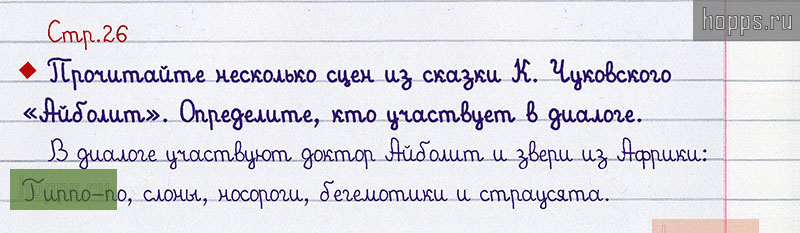 hopps.ru
Стр.26
Прочитайте несколько сцен из сказки К. Чуковского
«Айболит». Определите, кто участвует в диалоге.
В диалоге участвуют доктор Айболит и звери из Африки:
Гиппо-по, слоны, носороги, бегемотики и страусята.